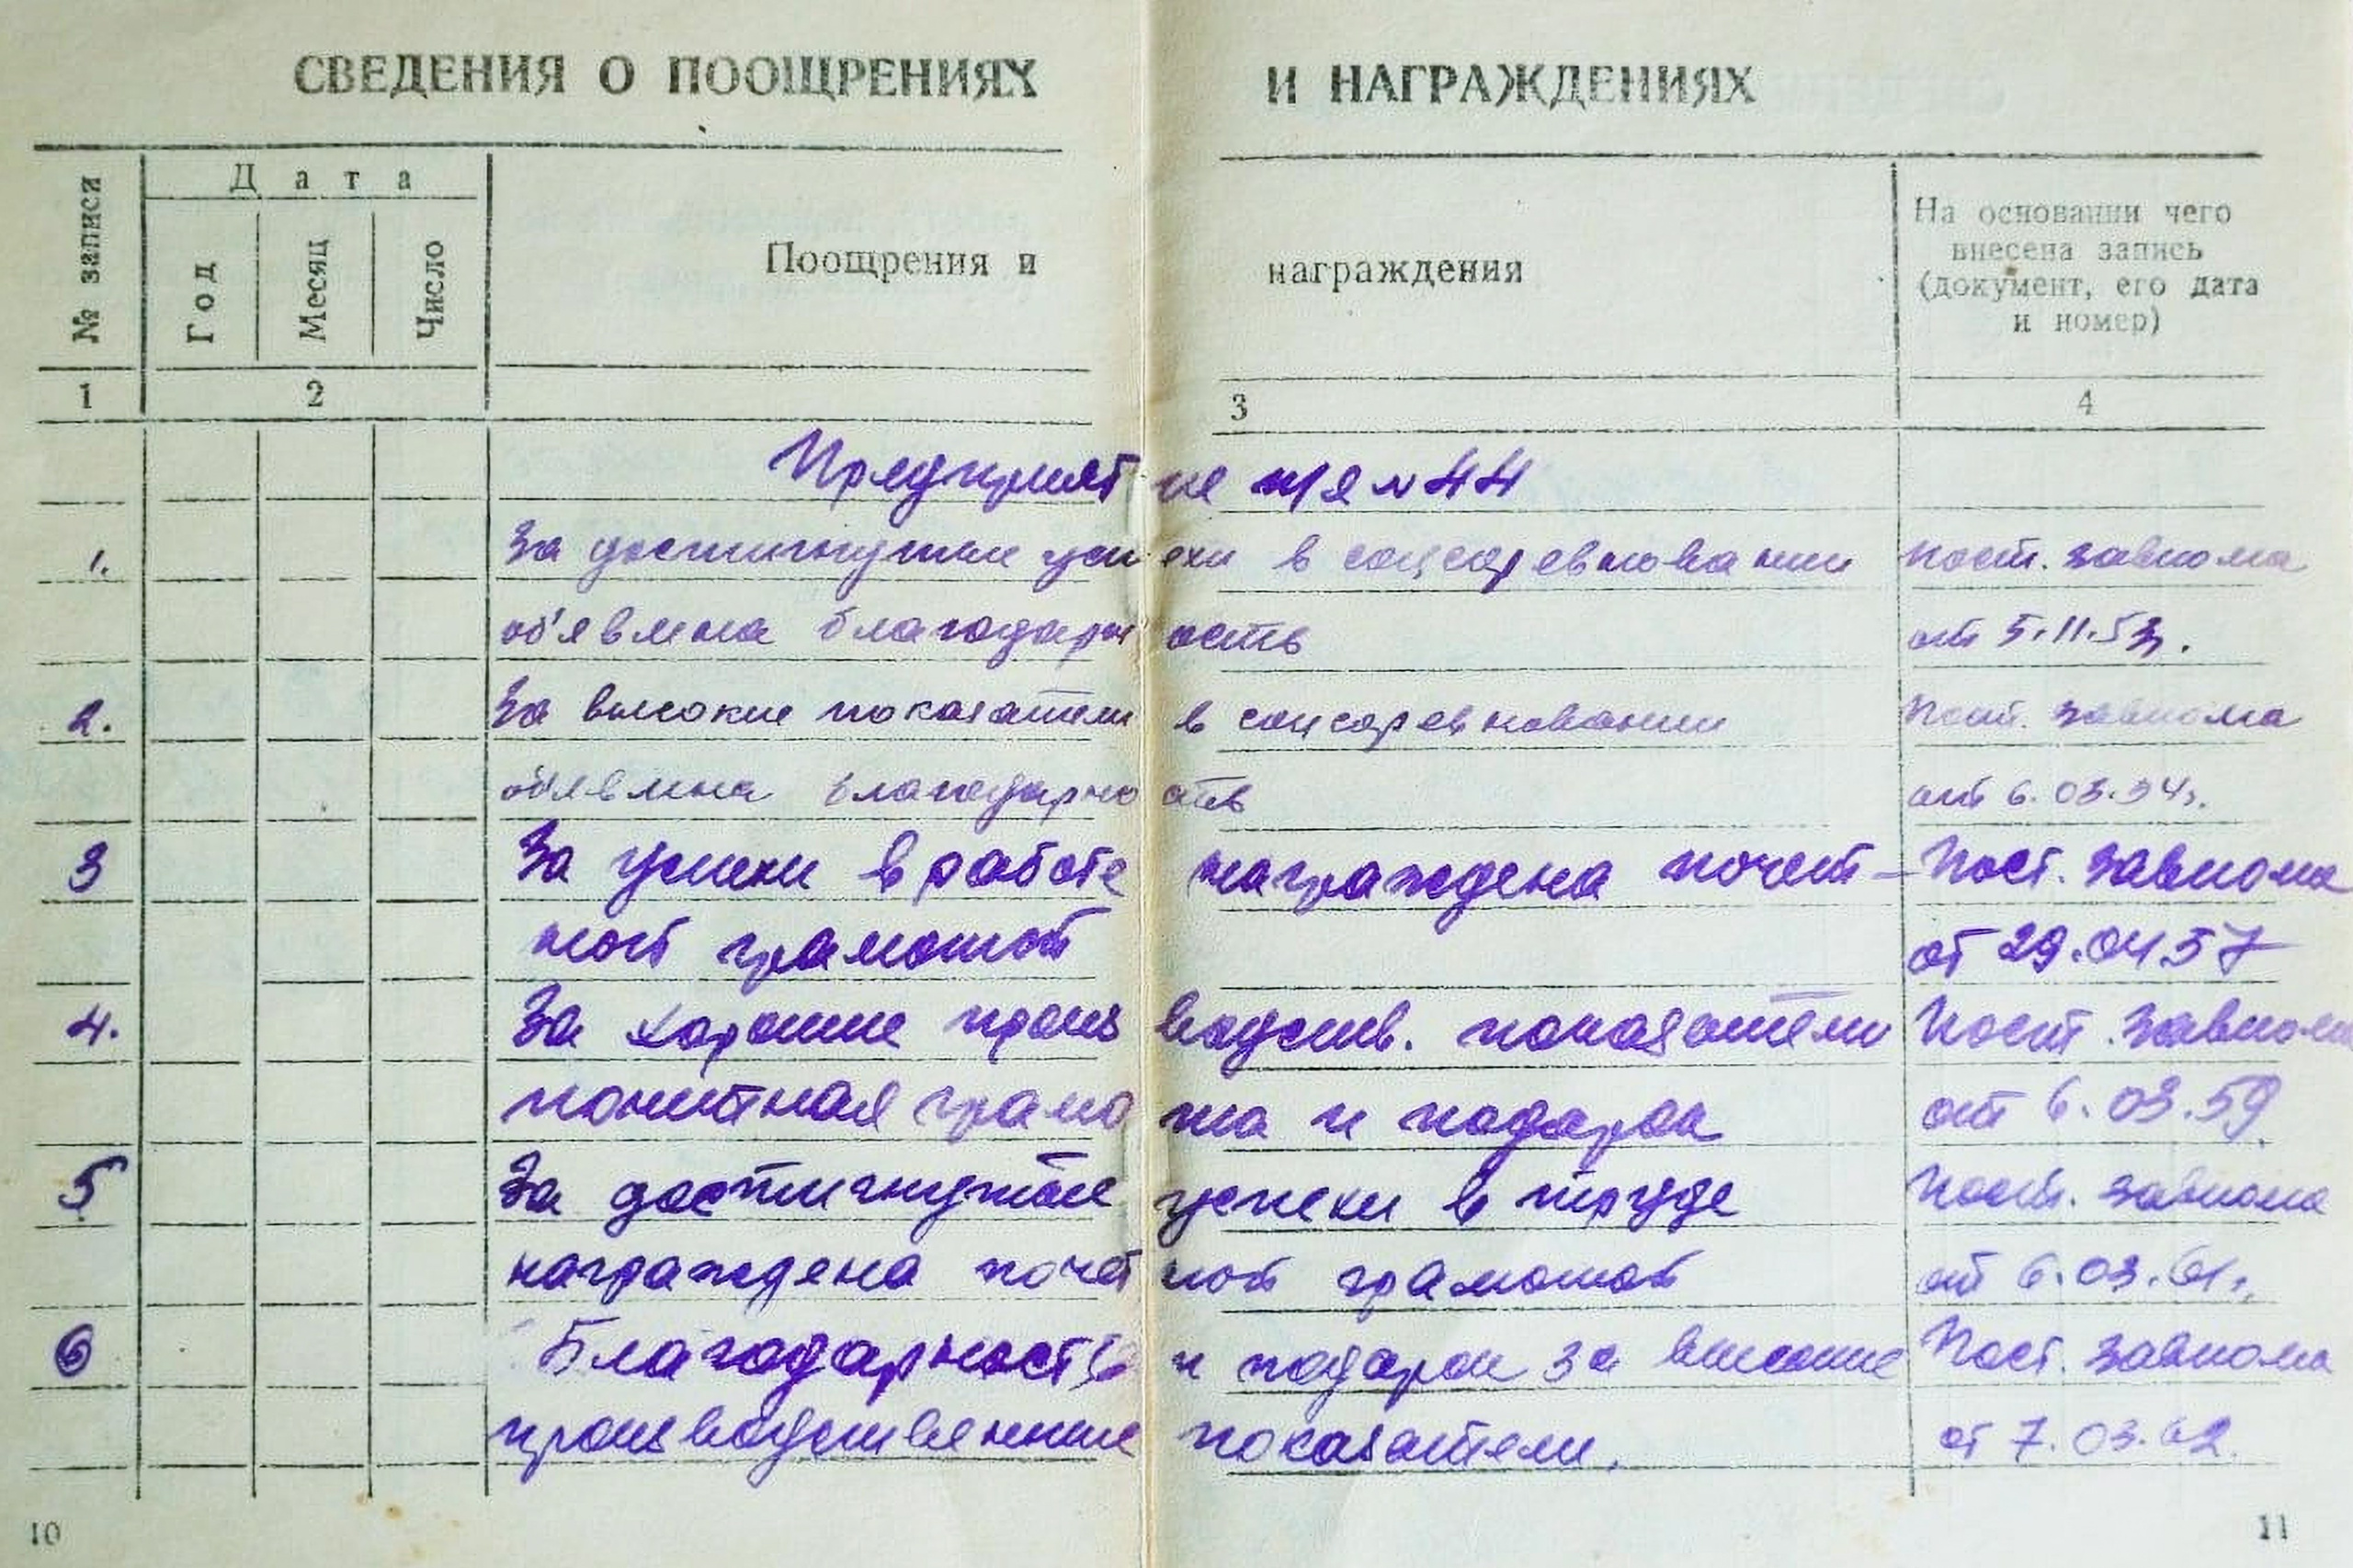 СВЕДЕНИЯ О ПООЩРЕНИЯХ И НАГРАЖДЕНИЯХ
№ записи
Дата
Год
Месяц
Число
Поощрения и награждения
На основании чего
внесена запись
(документ, его дата
и номер)
1 2 3 4
Предприятие п/я N 44
1. За достигнутые успехи в соцсоревновании Пост. завкома
об'явлена благодарность от 5.11.53г.
2. За высокие показатели в соцсоревновании Пост. завкома
об'явлена благодарность от 6.03.54г.
3 За успехи в работе награждена почет- Пост. завкома
ной грамотой от 29.04.57
4. За хорошие производств. показатели Пост. завкома
почетная грамота и подарок от 6.03.59.
5 За достигнутые успехи в труде Пост. завкома
награждена почетной грамотой от 6.03.61г.
6 Благодарность и подарок за высокие Пост. завкома
производственные показатели. от 7.03.62.
10 11